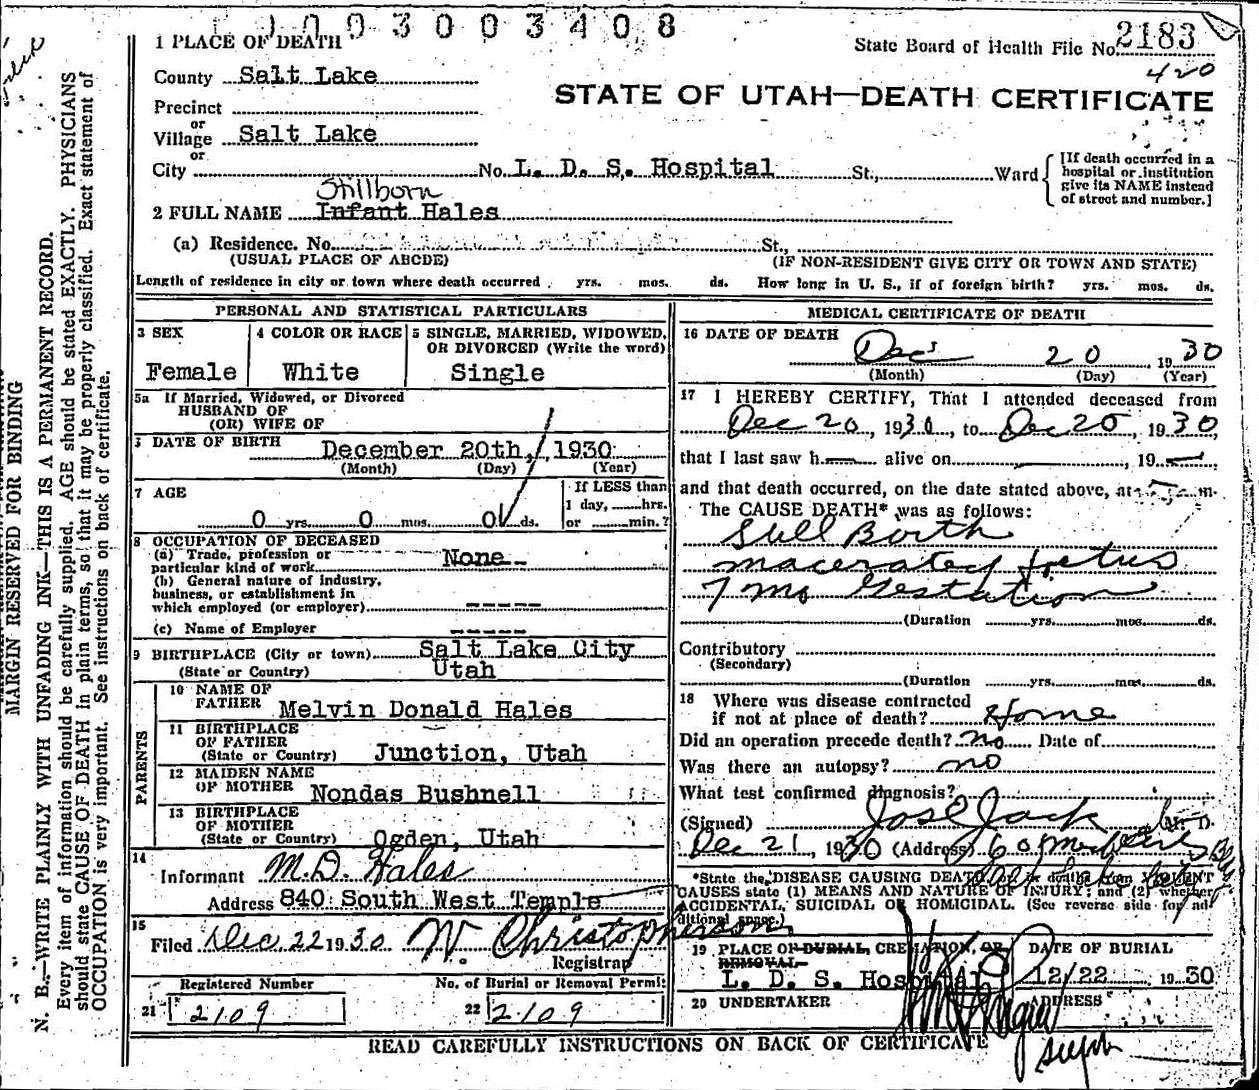 1003003408
1 PLACE OF DEATH
State Board of Health File No. 2183
420
County Salt Lake
STATE OF UTAH—DEATH CERTIFICATE
Precinct
or
Village Salt Lake
or
City No. L. D. S. Hospital St., Ward
[If death occurred in a
hospital or institution
give its NAME instead
of street and number.]
Stillborn
2 FULL NAME Infant Hales
(a) Residence. No. St.,
(USUAL PLACE OF ABCDE) (IF NON-RESIDENT GIVE CITY OR TOWN AND STATE)
Length of residence in city or town where death occurred yrs. mos. ds. How long in U. S., if of foreign birth? yrs. mos. ds.
PERSONAL AND STATISTICAL PARTICULARS
3 SEX
Female
4 COLOR OR RACE
White
5 SINGLE, MARRIED, WIDOWED,
OR DIVORCED (Write the word)
Single
5a If Married, Widowed, or Divorced
HUSBAND OF
(OR) WIFE OF
DATE OF BIRTH December 20th, 1930
(Month) (Day) (Year)
7 AGE
0 yrs. 0 mos. 0 ds.
If LESS than
1 day, hrs.
or min.?
8 OCCUPATION OF DECEASED
(a) Trade, profession or
particular kind of work None
(b) General nature of industry,
business, or establishment in
which employed (or employer) -----
(c) Name of Employer -----
9 BIRTHPLACE (City or town) Salt Lake City
(State or Country) Utah
PARENTS
10 NAME OF
FATHER Melvin Donald Hales
11 BIRTHPLACE
OF FATHER
(State or Country) Junction, Utah
12 MAIDEN NAME
OF MOTHER Nondas Bushnell
13 BIRTHPLACE
OF MOTHER
(State or Country) Ogden, Utah
14
Informant M.D. Hales
Address 840 South West Temple
15
Filed Dec 22 1930 W. Christopherson
Registrar
Registered Number No. of Burial or Removal Permit
21 2109 22 2109
MEDICAL CERTIFICATE OF DEATH
16 DATE OF DEATH
Dec 20 1930
(Month) (Day) (Year)
17 I HEREBY CERTIFY, That I attended deceased from
Dec 20, 1930, to Dec 20, 1930,
that I last saw h— alive on —, 19—
and that death occurred, on the date stated above, at m.
The CAUSE DEATH* was as follows:
Still Birth
macerated foetus
7 mo Gestation
(Duration yrs. mos. ds.
Contributory
(Secondary)
(Duration yrs. mos. ds.
18 Where was disease contracted
if not at place of death? Home
Did an operation precede death? no Date of
Was there an autopsy? no
What test confirmed diagnosis?
(Signed) Jos E Jack M. D.
Dec 21, 1930 (Address)
*State the DISEASE CAUSING DEATH, or in deaths from VIOLENT
CAUSES state (1) MEANS AND NATURE OF INJURY; and (2) whether
ACCIDENTAL, SUICIDAL OR HOMICIDAL. (See reverse side for ad-
ditional space.)
19 PLACE OF BURIAL, CREMATION, OR
REMOVAL
L. D. S. Hospital
DATE OF BURIAL
12/22 1930
20 UNDERTAKER ADDRESS
READ CAREFULLY INSTRUCTIONS ON BACK OF CERTIFICATE
MARGIN RESERVED FOR BINDING
N. B.—WRITE PLAINLY WITH UNFADING INK—THIS IS A PERMANENT RECORD.
Every item of information should be carefully supplied. AGE should be stated EXACTLY. PHYSICIANS
should state CAUSE OF DEATH in plain terms, so that it may be properly classified. Exact statement of
OCCUPATION is very important. See instructions on back of certificate.